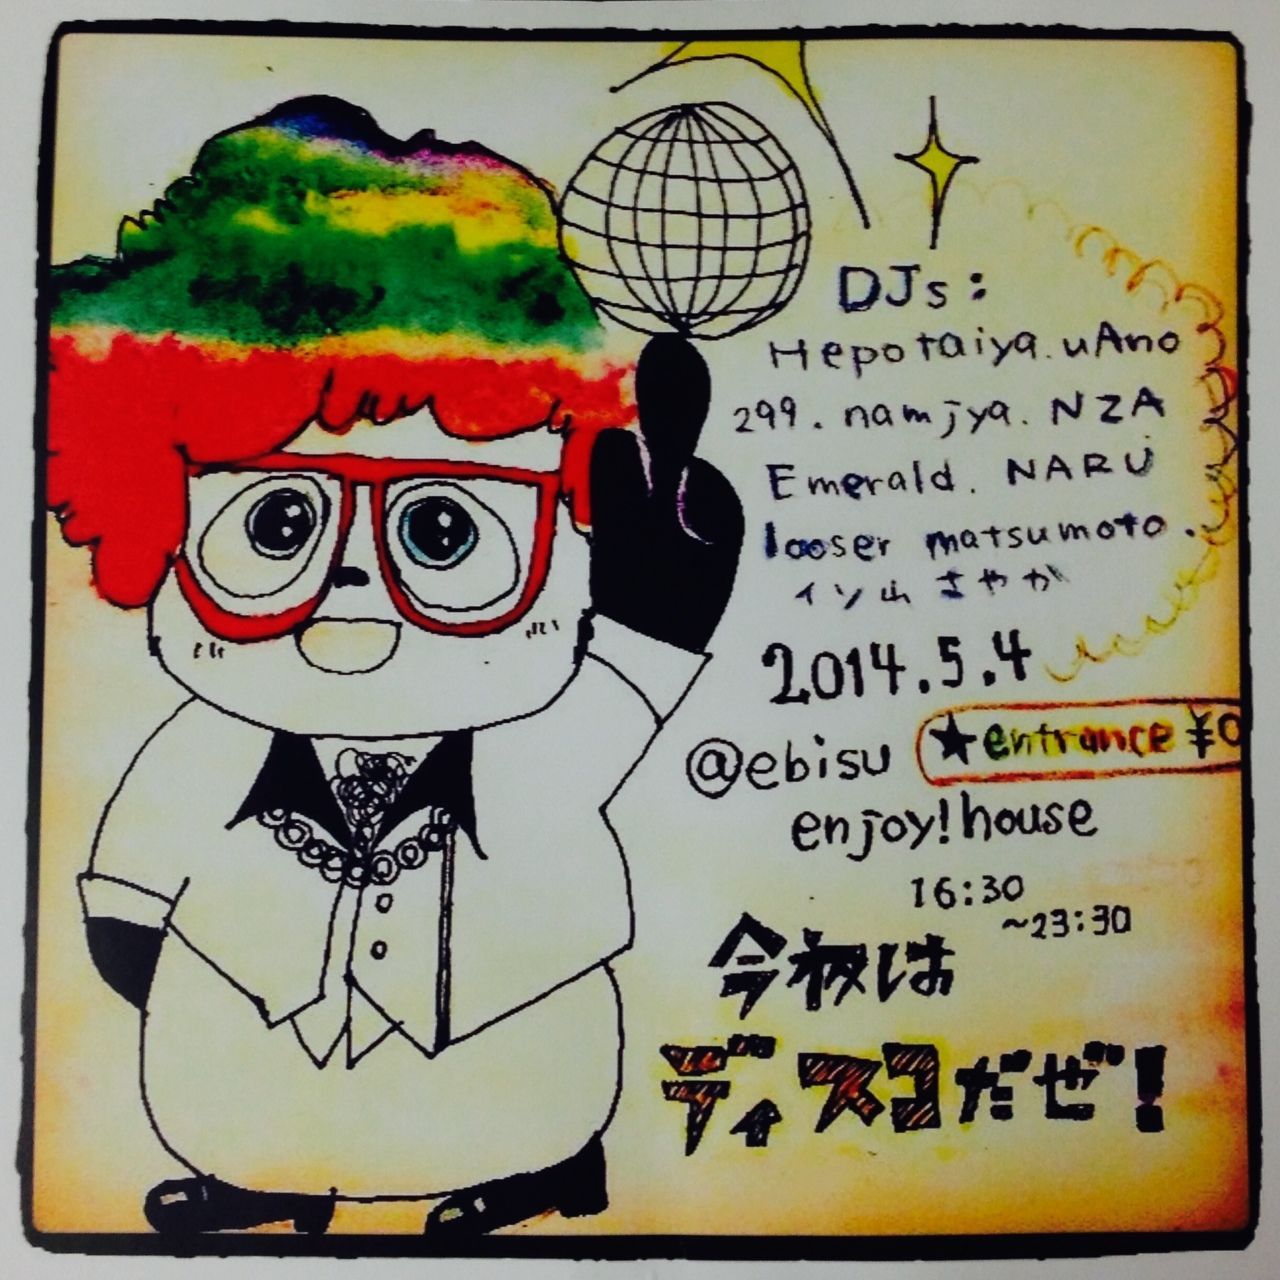 DJs:
Hepotaiya. uAno
299. namjya. NZA
Emerald. NARU
looser matsumoto.
イソ山 さやか
2014.5.4
@ebisu ★entrance ¥0
enjoy! house
16:30
~23:30
今夜は
ディスコだぜ!